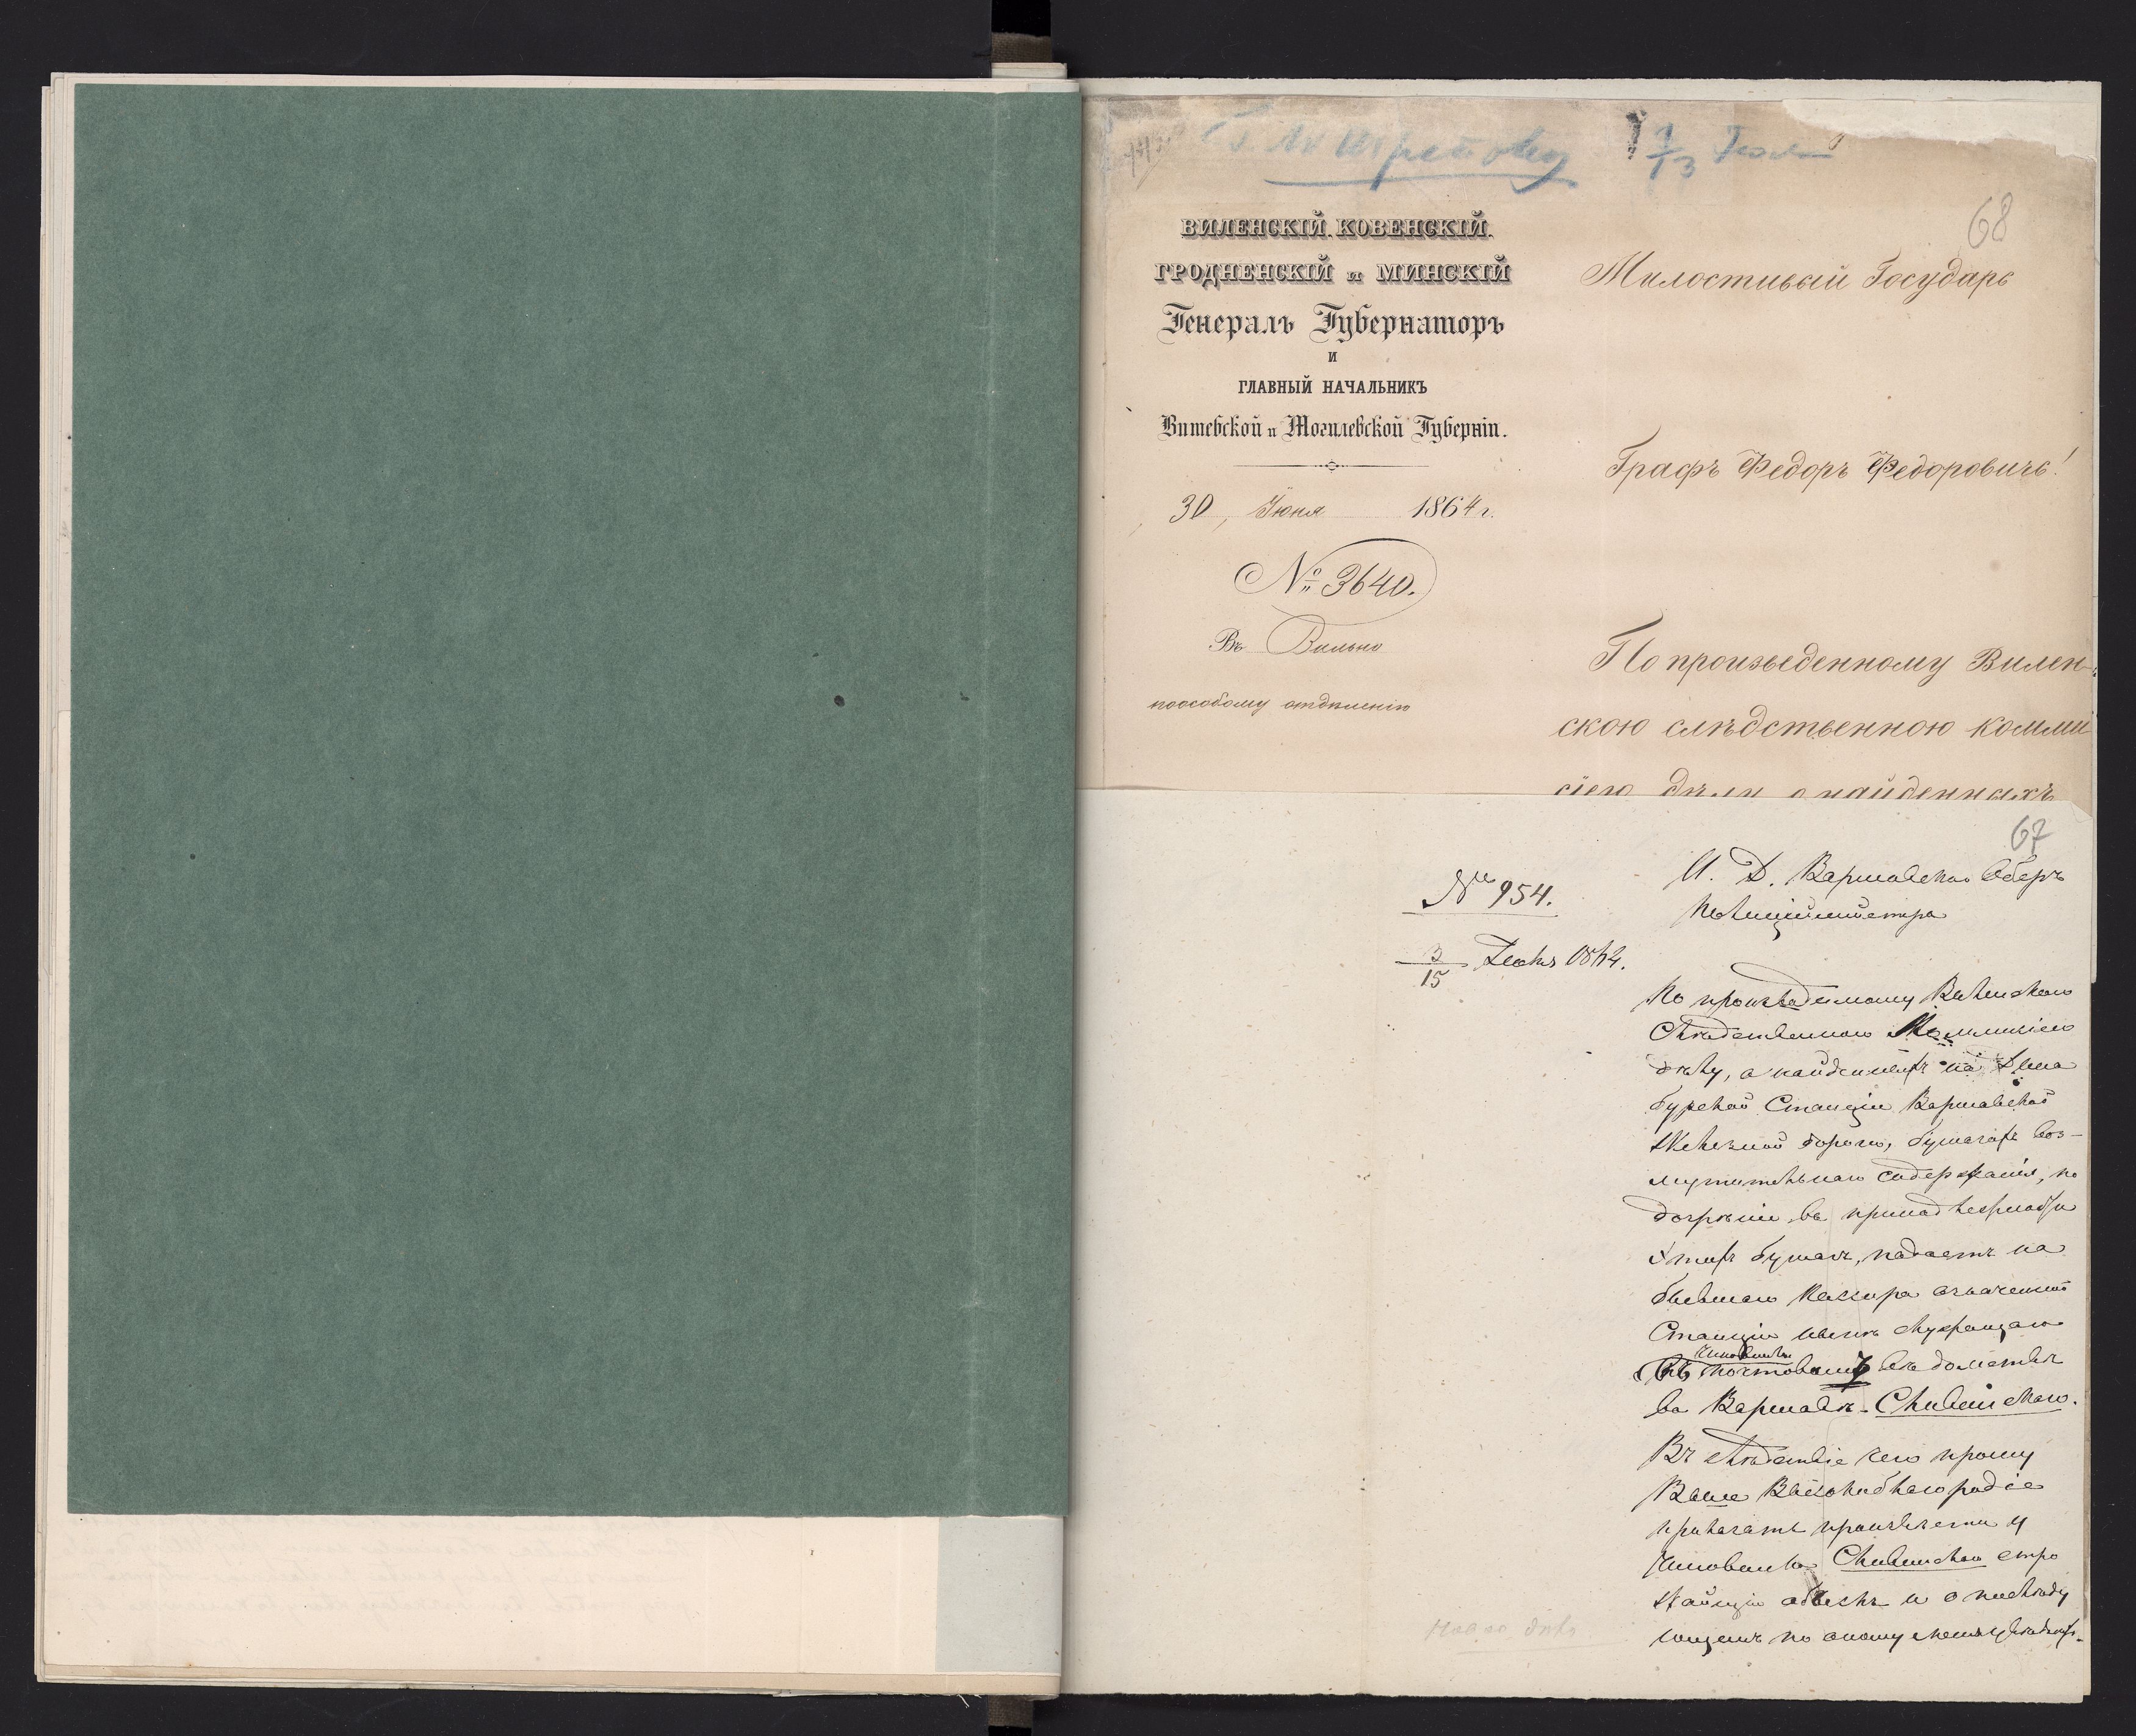 1/13 Іюля
68
ВИЛЕНСКІЙ, КОВЕНСКІЙ,
ГРОДНЕНСКІЙ и МИНСКІЙ
Генералъ Губернаторъ
и
ГЛАВНЫЙ НАЧАЛЬНИКЪ
Витебской и Могилевской Губерніи.
30, Іюня 1864 г.
№ 3640.
Въ Вильно
по особому отдѣленію
Милостивый Государь
Графъ Федоръ Федоровичь!
По произведенному Вилен-
скою слѣдственною комми
сіею дѣлу о найденныхъ
67
№ 954.
3/15 Іюля 1864.
И. Д. Варшавскаго Оберъ
Полиціймейстра
По производимому Виленскою
Слѣдственною Коммисіею
дѣлу, о найденныхъ на Дина
бургской Станціи Варшавской
Желѣзной дороги, бумагахъ воз-
мутительнаго содержанія, по
дозрѣніе въ принадлежности
этихъ бумагъ, падаетъ на
бывшаго Кассира означенной
Станціи нынѣ служащаго
Чиновника
въ почтовомъ вѣдомствѣ
въ Варшавѣ - Сливинскаго.
Въ слѣдствіе чего прошу
Ваше Высокоблагородіе
приказать произвести у
Чиновника Сливинскаго стро
жайшій обыскъ и о послѣду
ющемъ по оному
Новое дѣло